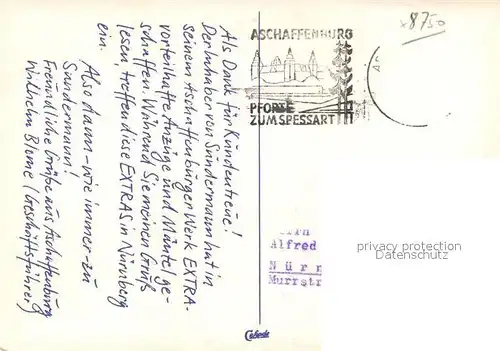 Als Dank für Kundentreue!
Der Inhaber von Sundermann hat in
seinem Aschaffenburger Werk EXTRA-
vorteilhafte Anzüge und Mäntel ge-
schaffen. Während Sie meinen Gruß
lesen, treffen diese EXTRAS in Nürnberg
ein.
Also dann - wie immer - zu
Sundermann!
Freundliche Grüße aus Aschaffenburg
Wilhelm Blome (Geschäftsführer)
x8750
ASCHAFFENBURG
PFORTE
ZUM SPESSART
Alfred
Nürn
Murrstr
privacy protection
Datenschutz
Cekade